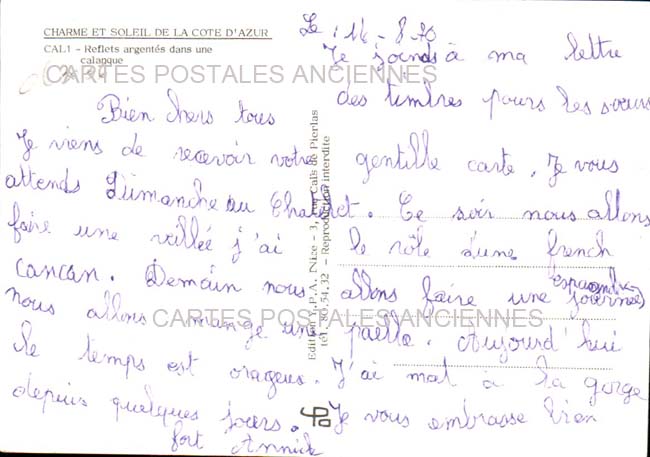 CHARME ET SOLEIL DE LA COTE D'AZUR
CAL1 - Reflets argentés dans une
calanque
Le : 16 - 8 - 70
Je joinds à ma lettre
des timbres pours les sœurs
CARTES POSTALES ANCIENNES
Bien chers tous
Je viens de recevoir votre gentille carte. Je vous
attends Dimanche au Chatelet. Ce soir nous allons
faire une veillée j'ai le rôle d'une french
cancan. Demain nous allons faire une journée
espagnole
nous allons mangé une paella. Aujourd'hui
CARTES POSTALES ANCIENNES
le temps est orageux. J'ai mal à la gorge
depuis quelques jours. Je vous embrasse bien
fort Annick
Edition Y.P.A. Nice - 3, rue Cais de Pierlas
tél. 80.54.32 - Reproduction interdite